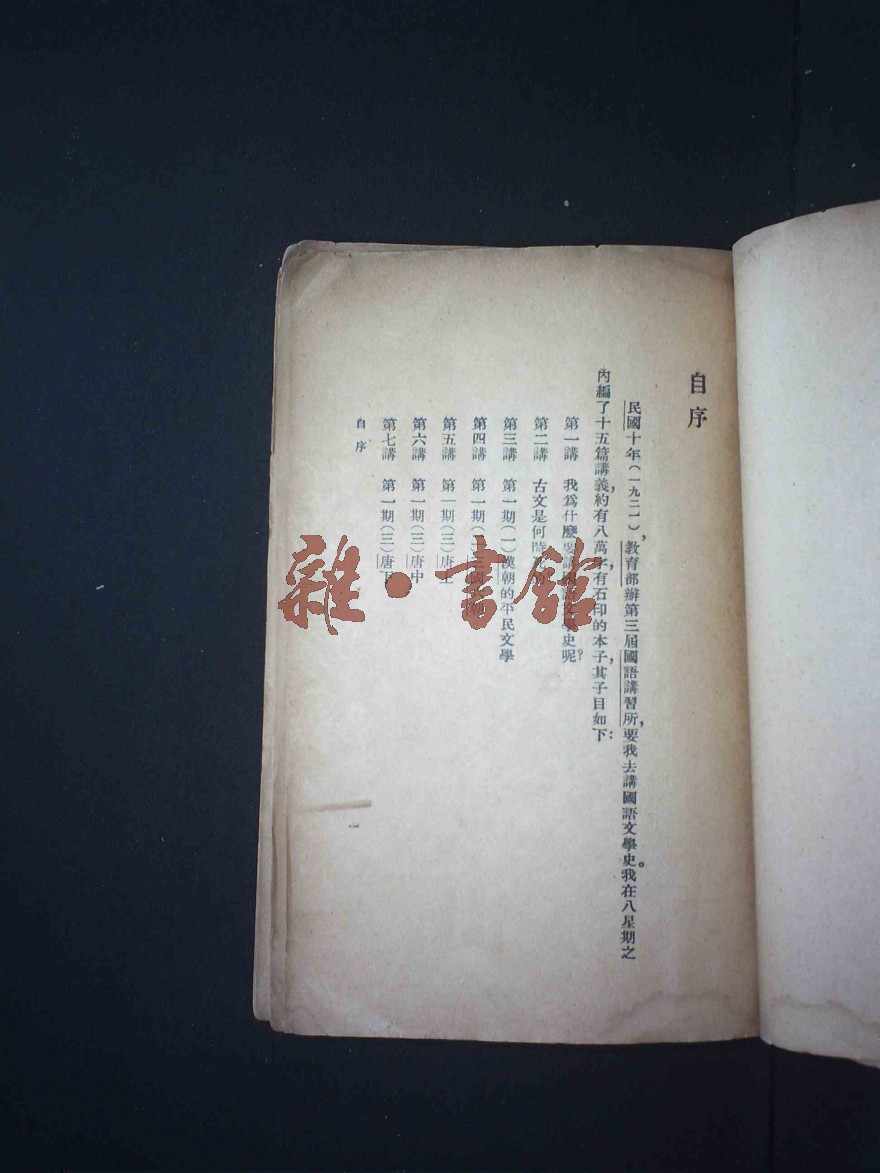 自序
民國十年(一九二一),教育部辦第三屆國語講習所,要我去講國語文學史。我在八星期之
內編了十五篇講義,約有八萬字,有石印的本子,其子目如下:
第一講 我為什麼要講國語文學史呢?
第二講 古文是何時
第三講 第一期(一)漢朝的平民文學
第四講 第一期
第五講 第一期(三)唐上
第六講 第一期(三)唐中
第七講 第一期(三)唐下
自序
一
雜·書館